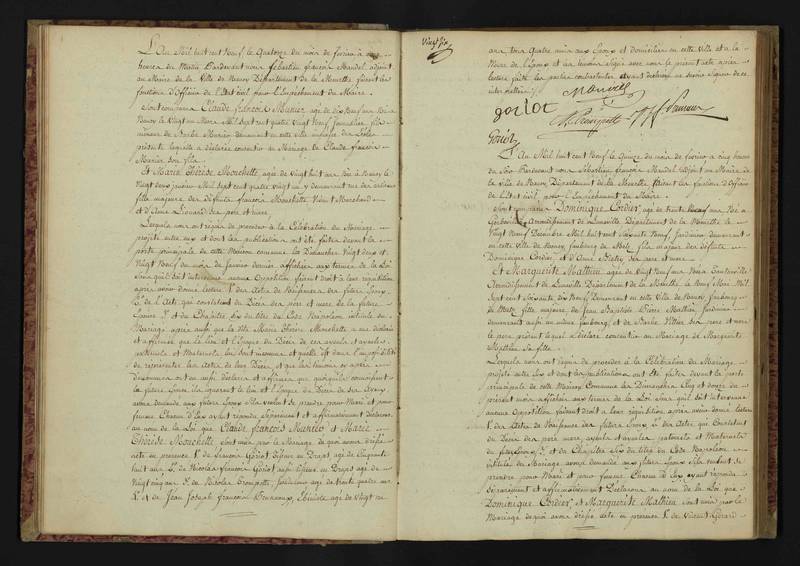 L'An Mil huit cent Neuf le Quatorze du mois de fevrier à
heures du Matin Pardevant nous Sébastien françois Mandel adjoint
au Maire de la Ville de Nancy Département de la Meurthe faisant les
fonctions d'Officier de l'Etat civil pour l'Empêchement du Maire.
Sont comparus Claude François Munier agé de dix Neuf ans Né à
Nancy le Vingt un Mars Mil Sept cent quatre vingt Neuf Journalier fils
mineur de Barbe Munier demeurant en cette ville
présente laquelle a déclaré consentir au Mariage de Claude françois
Munier Son fils
Et Marie Thérèse Mouchette agée de Vingt huit ans Née à Nancy le
Vingt deux Mil Sept cent quatre vingt un y demeurant rue des
fille majeure des défunts françois Mouchette Vivant Marchand
et d'Anne Lionard Ses pere et mere,
Lesquels nous ont requis de procéder à la Célébration du Mariage
projetté entre eux et dont les publications ont été faites devant la
porte principale de cette Maison commune les Dimanches Vingt deux et
Vingt Neuf du mois de Janvier dernier affichées aux termes de la Loi
Sans qu'il Soit intervenu aucune Opposition faisant droit à leur requisition
après avoir donné lecture 1° des Actes de Naissance des futurs Epoux
2° de l'Acte qui constatent du Décès des pere et mere de la future
Epouse 3° et du Chapitre Six du titre du Code Napoléon intitulé du
Mariage après aussi que la dite Marie Thérèse Mouchette a declaré
et affirmé que le lieu et l'Epoque du Décès de ses ayeuls et ayeules
paternels et Maternels lui Sont inconnus et qu'elle est dans l'impossibilité
de representer les Actes de leur Décès, et que les temoins ci après
dénommés ont aussi déclaré et affirmé que quoiqu'ils connoissent
la future Epouse ils ignorent le lieu et l'Epoque du Décès de Ses Ayeux
avons demandé aux futurs Epoux s'ils veulent se prendre pour Mari et pour
femme Chacun d'Eux ayant répondu Séparément et affirmativement déclarons
au nom de la Loi que Claude françois Munier et Marie
Thérèse Mouchette Sont unis par le Mariage de quoi avons dressé
acte en presence 1° de françois Goriot Tisseur en Draps agé de Cinquante
huit ans 2° de Nicolas françois Goriot aussi tisseur en Draps agé de
Vingt cinq ans 3° de Nicolas Trompette, Jardinier agé de trente quatre ans
4° et de Jean Joseph françois Ebéniste agé de Vingt
Vingt Six
ans tous quatre amis aux Epoux et domiciliés en cette Ville et à la
Mere de l'Epoux et les temoins Signé avec nous le present acte après
lecture faite les parties contractantes ayant déclaré ne savoir Signer de ce
interpellées
goriot
Goriot
L'An Mil huit cent Neuf le Quinze du mois de fevrier à cinq heures
du Soir Pardevant nous Sébastien françois Mandel Adjoint au Maire de
la Ville de Nancy Département de la Meurthe faisant les fonctions d'Officier
de l'Etat civil, pour l'Empêchement du Maire.
Sont comparus Dominique Cordier agé de trente ans Né à
Arrondissement de Lunéville Département de la Meurthe le
Vingt Neuf Decembre Mil Sept cent Soixante Jardinier demeurant
en cette Ville de Nancy faubourg de Metz fils majeur des défunts
Dominique Cordier et d'Anne Ses pere et mere
Et Marguerite Mathieu agée de Vingt Neuf ans Née à
Arrondissement de Lunéville Département de la Meurthe le Neuf Mai Mil
Sept cent Soixante dix Neuf Demeurant en cette Ville de Nancy faubourg
de Metz, fille majeure de Jean Baptiste Pierre Mathieu Jardinier
demeurant aussi au même faubourg et de Barbe Ses pere et mere
le pere present lequel a déclaré consentir au Mariage de Marguerite
Mathieu Sa fille
Lesquels nous ont requis de procéder à la Célébration du Mariage
projetté entre Eux et dont les publications ont été faites devant la porte
principale de cette Maison Commune les Dimanches Cinq et douze du
présent mois affichées aux termes de la Loi Sans qu'il Soit intervenu
aucune Opposition, faisant droit à leur requisition, après avoir donné lecture
1° des Actes de Naissance des futurs Epoux 2° des Actes qui Constatent
du Décès des pere mere, ayeuls et ayeules paternels et Maternels
du futur Epoux 3° et du Chapitre Six du titre du Code Napoléon
intitulé du Mariage, avons demandé aux futurs Epoux s'ils veulent se
prendre pour Mari et pour femme Chacun d'Eux ayant répondu
Séparément et affirmativement Déclarons au nom de la Loi que
Dominique Cordier et Marguerite Mathieu Sont unis par le
Mariage de quoi avons dressé acte en presence 1° de Vincent Gérard